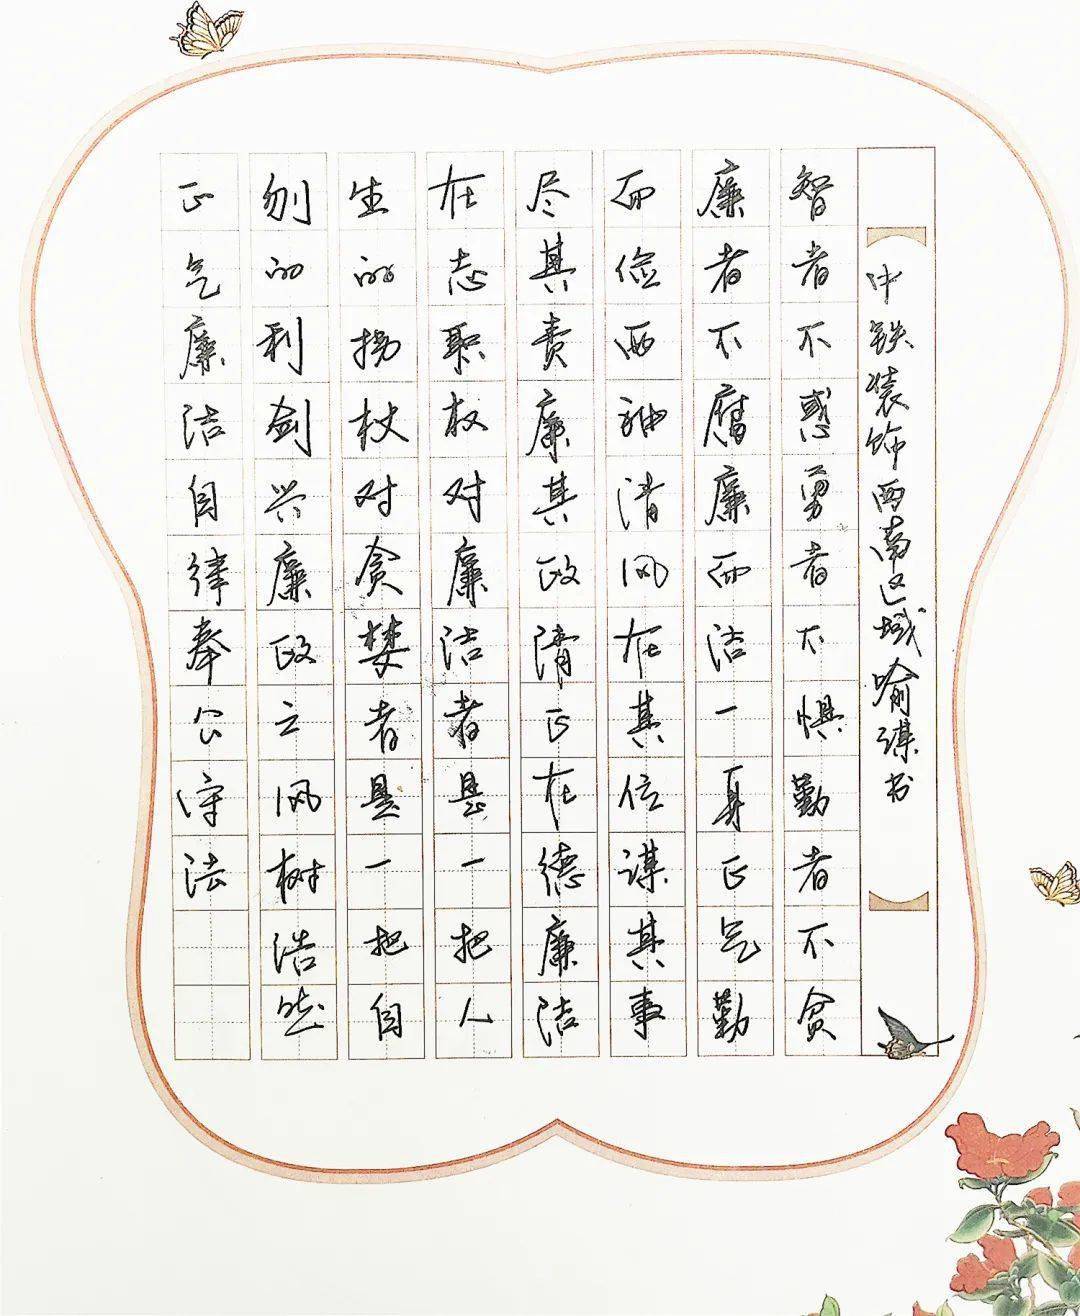 中铁装饰西南区域喻谋书
智者不惑勇者不惧勤者不贫
廉者不腐廉而洁一身正气勤
而俭两袖清风在其位谋其事
尽其责廉其政清正在德廉洁
在志职权对廉洁者是一把人
生的拐杖对贪婪者是一把自
刎的利剑兴廉政立风树浩然
正气廉洁自律奉公守法